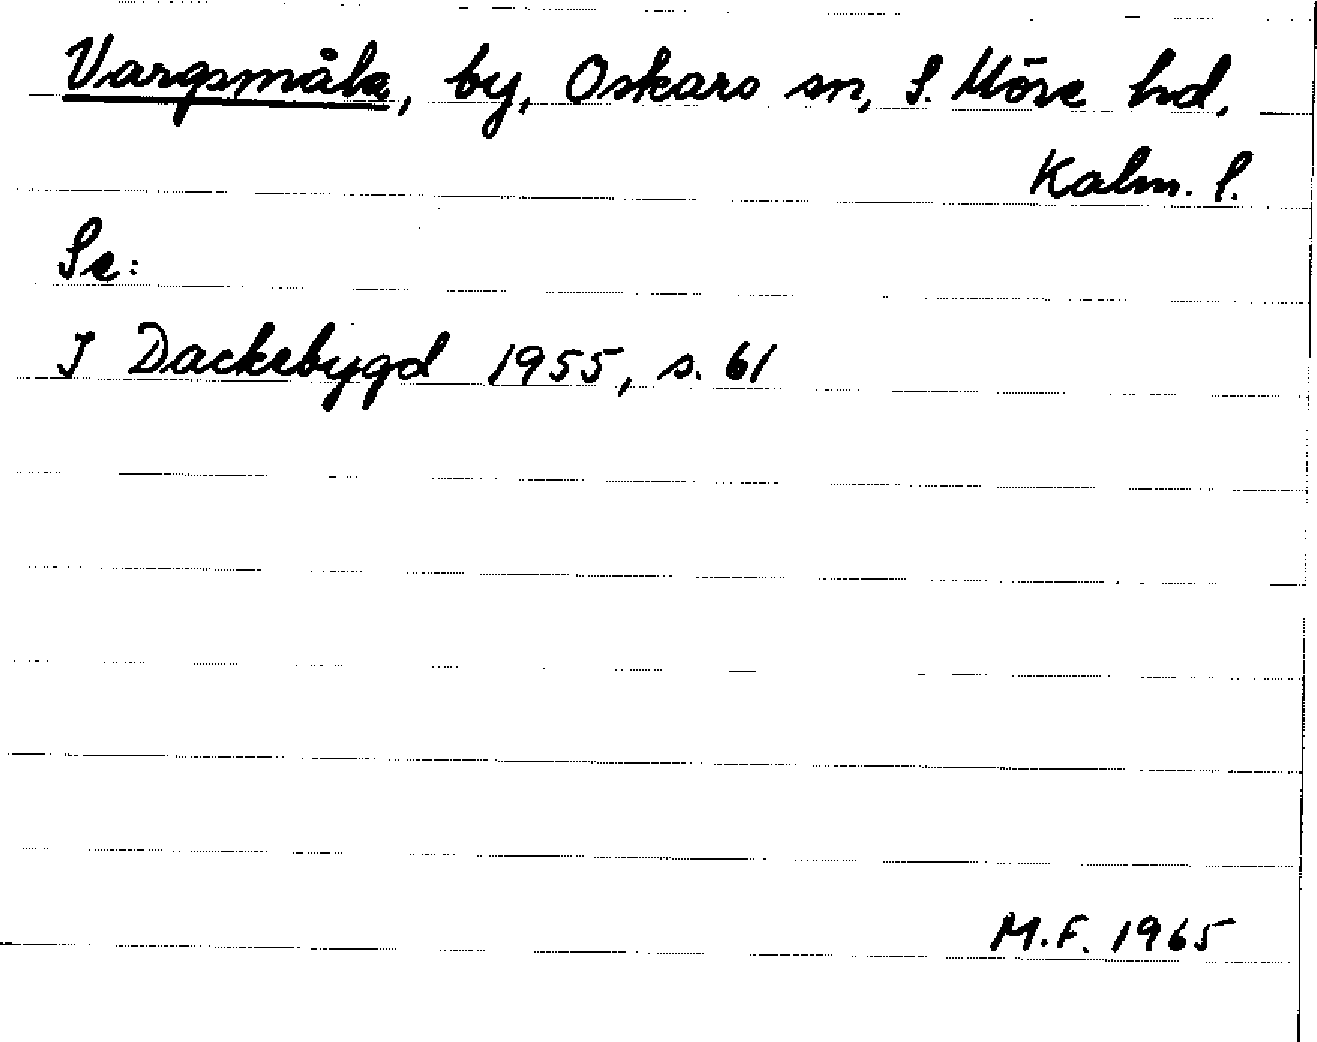 Vargsmåla, by, Oskars sn, S. Möre hd.
Kalm. l.
Se:
I Dackebygd 1955, s. 61
M.F. 1965